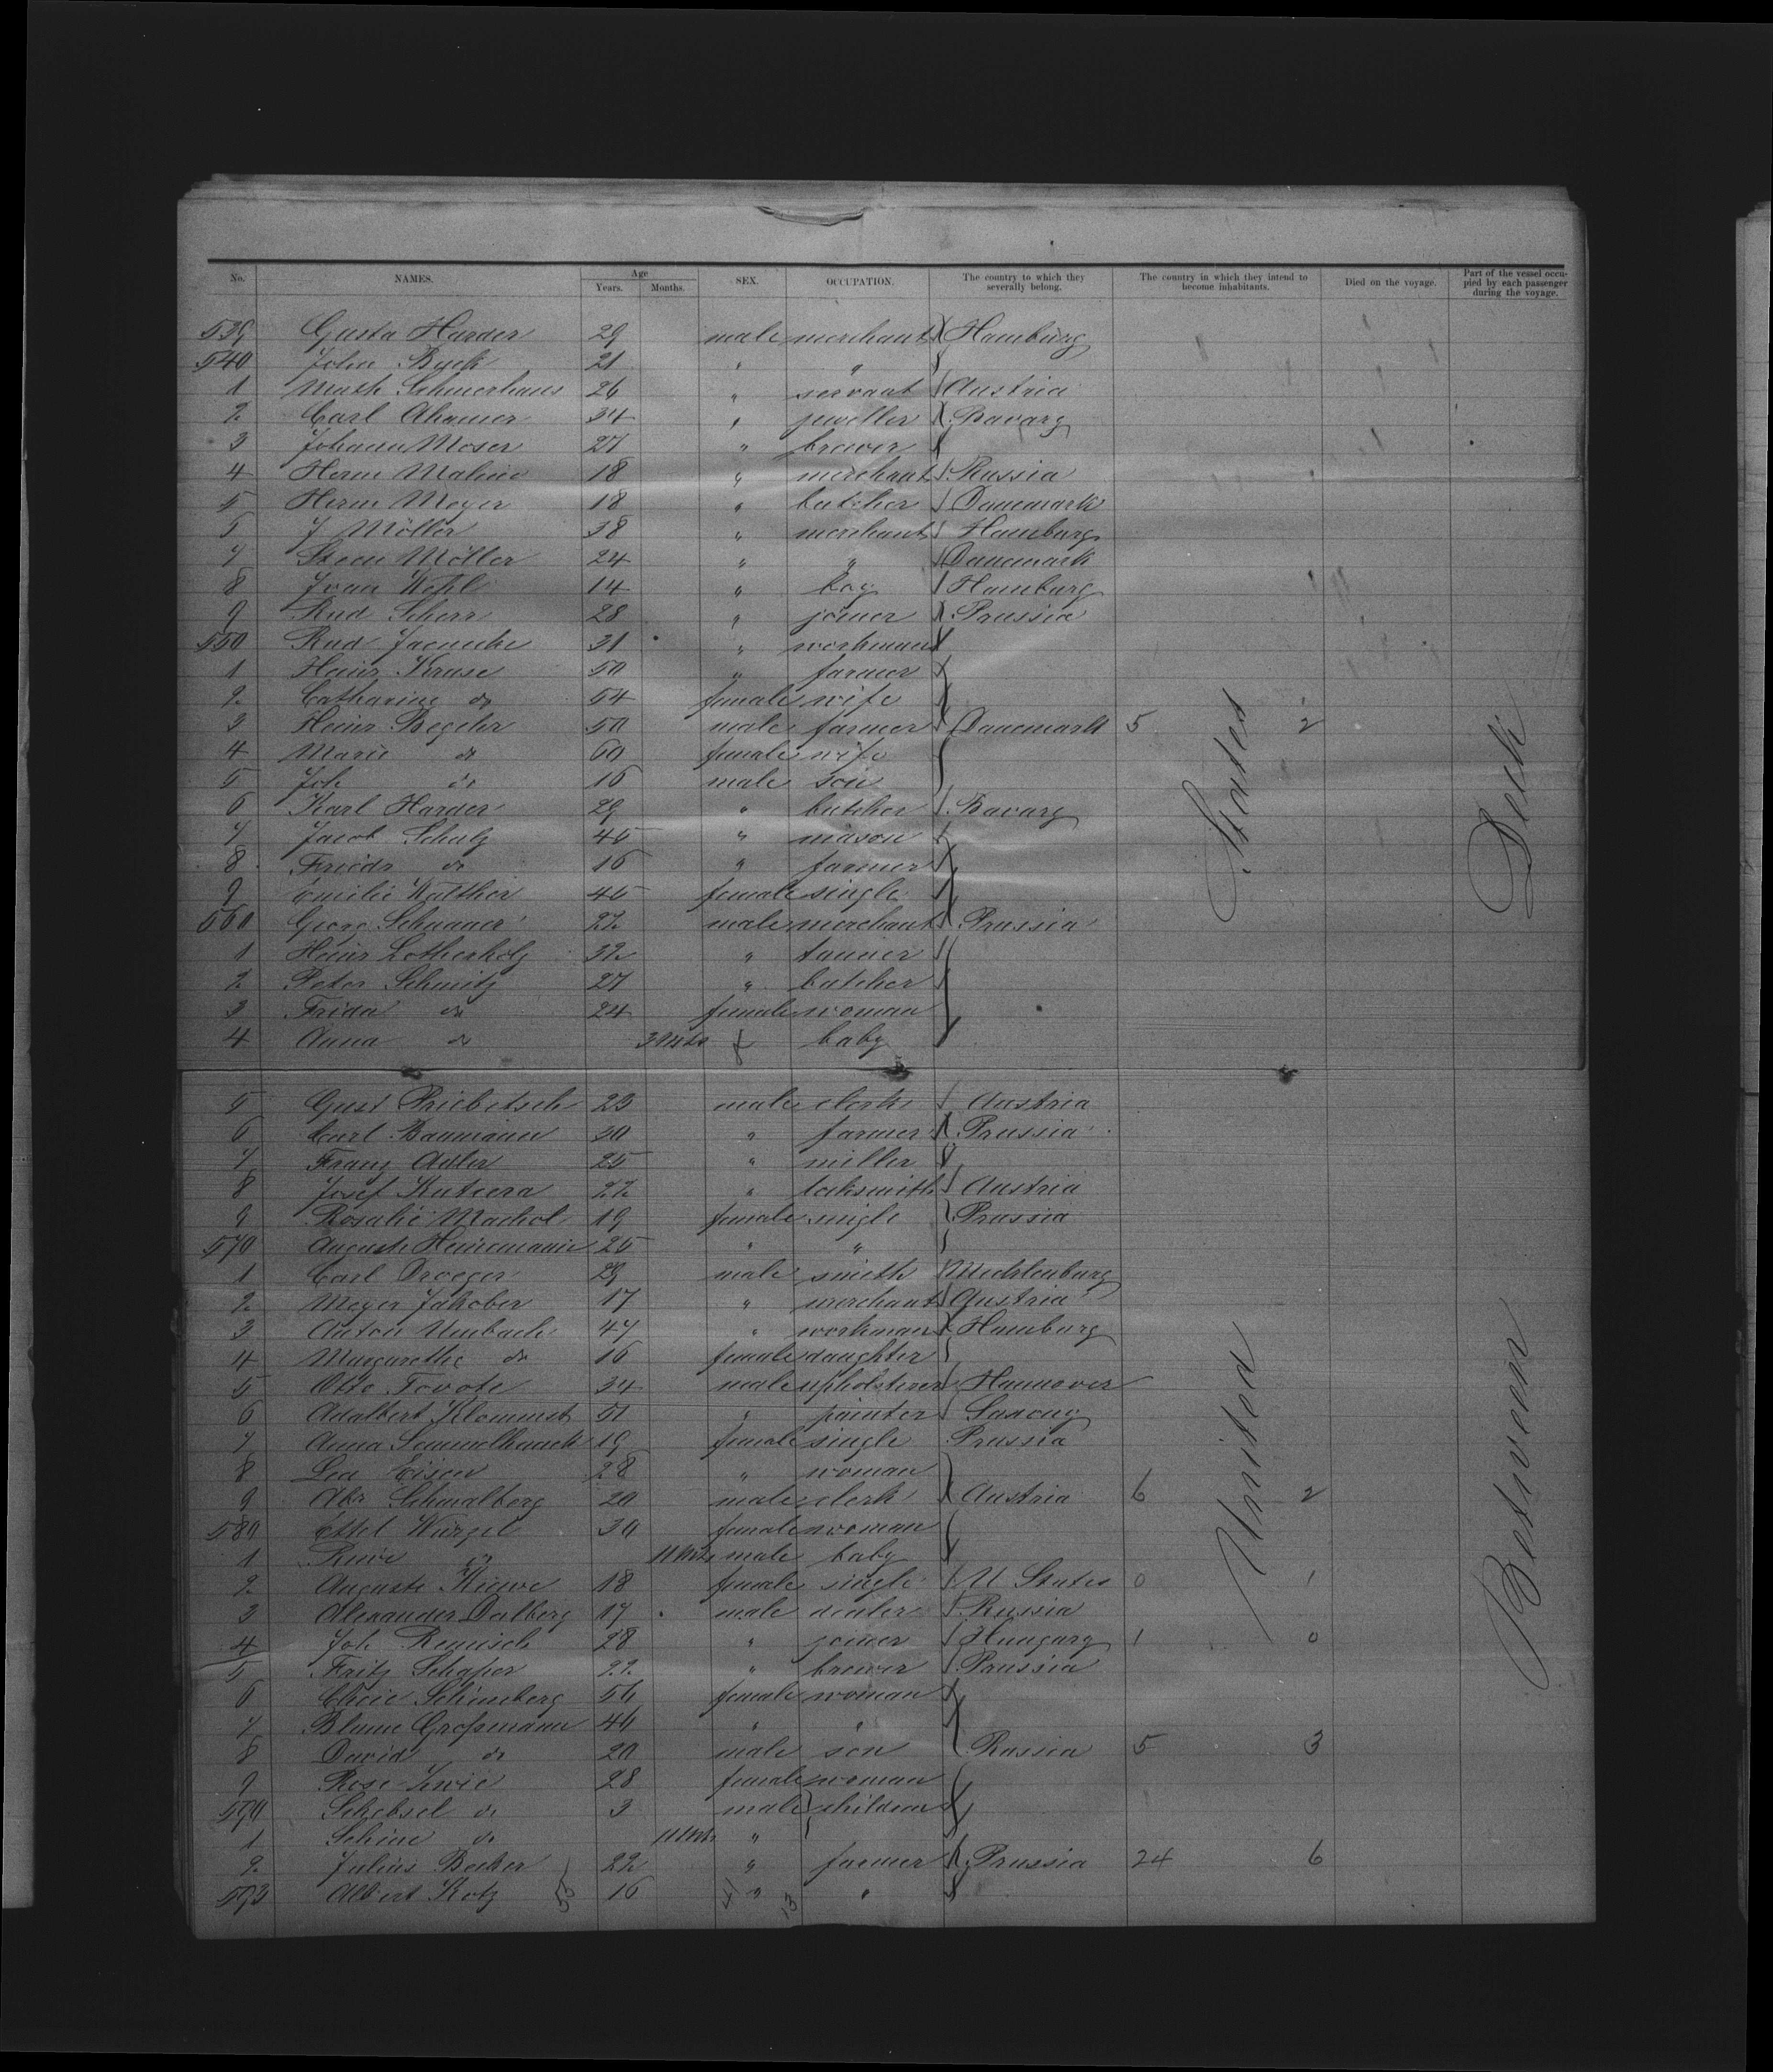 No. NAMES. Age Years. Months. SEX. OCCUPATION. The country to which they severally belong. The country in which they intend to become inhabitants. Died on the voyage. Part of the vessel occupied by each passenger during the voyage.
539 Gusta Harder 29 male merchant Hamburg
540 John Buck 21 " "
1 Math 26 " servant Austria
2 Carl 34 " jeweller Bavary
3 Johann Moser 27 " brewer
4 Herm 18 " merchant Russia
5 Herm Meyer 18 " butcher Danemark
5 J Möller 38 " merchant Hamburg
7 Möller 24 " " Danemark
8 14 " boy Hamburg
9 Rud Scherr 28 " joiner Prussia
550 Rud 31 " workman
1 Heinr Kruse 50 " farmer
2 Catharine do 54 female wife
3 Heinr 50 male farmer Danemark 5 2
4 Marie do 60 female wife
5 Joh do 16 male son
6 Karl Harder 29 " butcher Bavary
7 Jacob Schulz 45 " mason
8 Friedr do 16 " farmer
9 Emilie Walther 45 female single
560 Georg 22 male merchant Prussia
1 Heinr 32 " tanner
2 Peter Schmitz 27 " butcher
3 Frida do 24 female woman
4 Anna do 3 Mts f baby
5 Gust Priebetsch 23 male clerk Austria
6 Carl Baumann 30 " farmer Prussia
7 Franz Adler 25 " miller
8 Josef Kutcera 22 " locksmith Austria
9 Rosalie Machol 19 female single Prussia
570 Auguste Heinemann 25 " "
1 Carl Droeger 29 male smith Mecklenburg
2 Meyer Jakober 17 " merchant Austria
3 Anton Umbach 47 " workman Hamburg
4 Margarethe do 16 female daughter
5 Otto Tovote 34 male upholsterer Hannover
6 Adalbert 51 " painter Saxony
7 Anna 19 female single Prussia
8 Lea Eisen 28 " woman
9 Abr Schmalberg 20 male clerk Austria 6 2
580 Ettel Würzel 30 female woman
1 do 11 Mts male baby
2 Auguste 18 female single U States 0 1
3 Alexander Dalberg 17 male dealer Russia
4 Joh 28 " joiner Hungary 1 0
5 Fritz Schaper 22 " brewer Prussia
6 56 female woman
7 Blume Großmann 46 " "
8 David do 20 male son Russia 5 3
9 Rose 28 female woman
590 Schebsel do 3 male children
1 do 11 Mts "
2 Julius Becker 22 " farmer Prussia 24 6
593 Albert Kotz 16 " "
53 41 13
United States
Between Deck